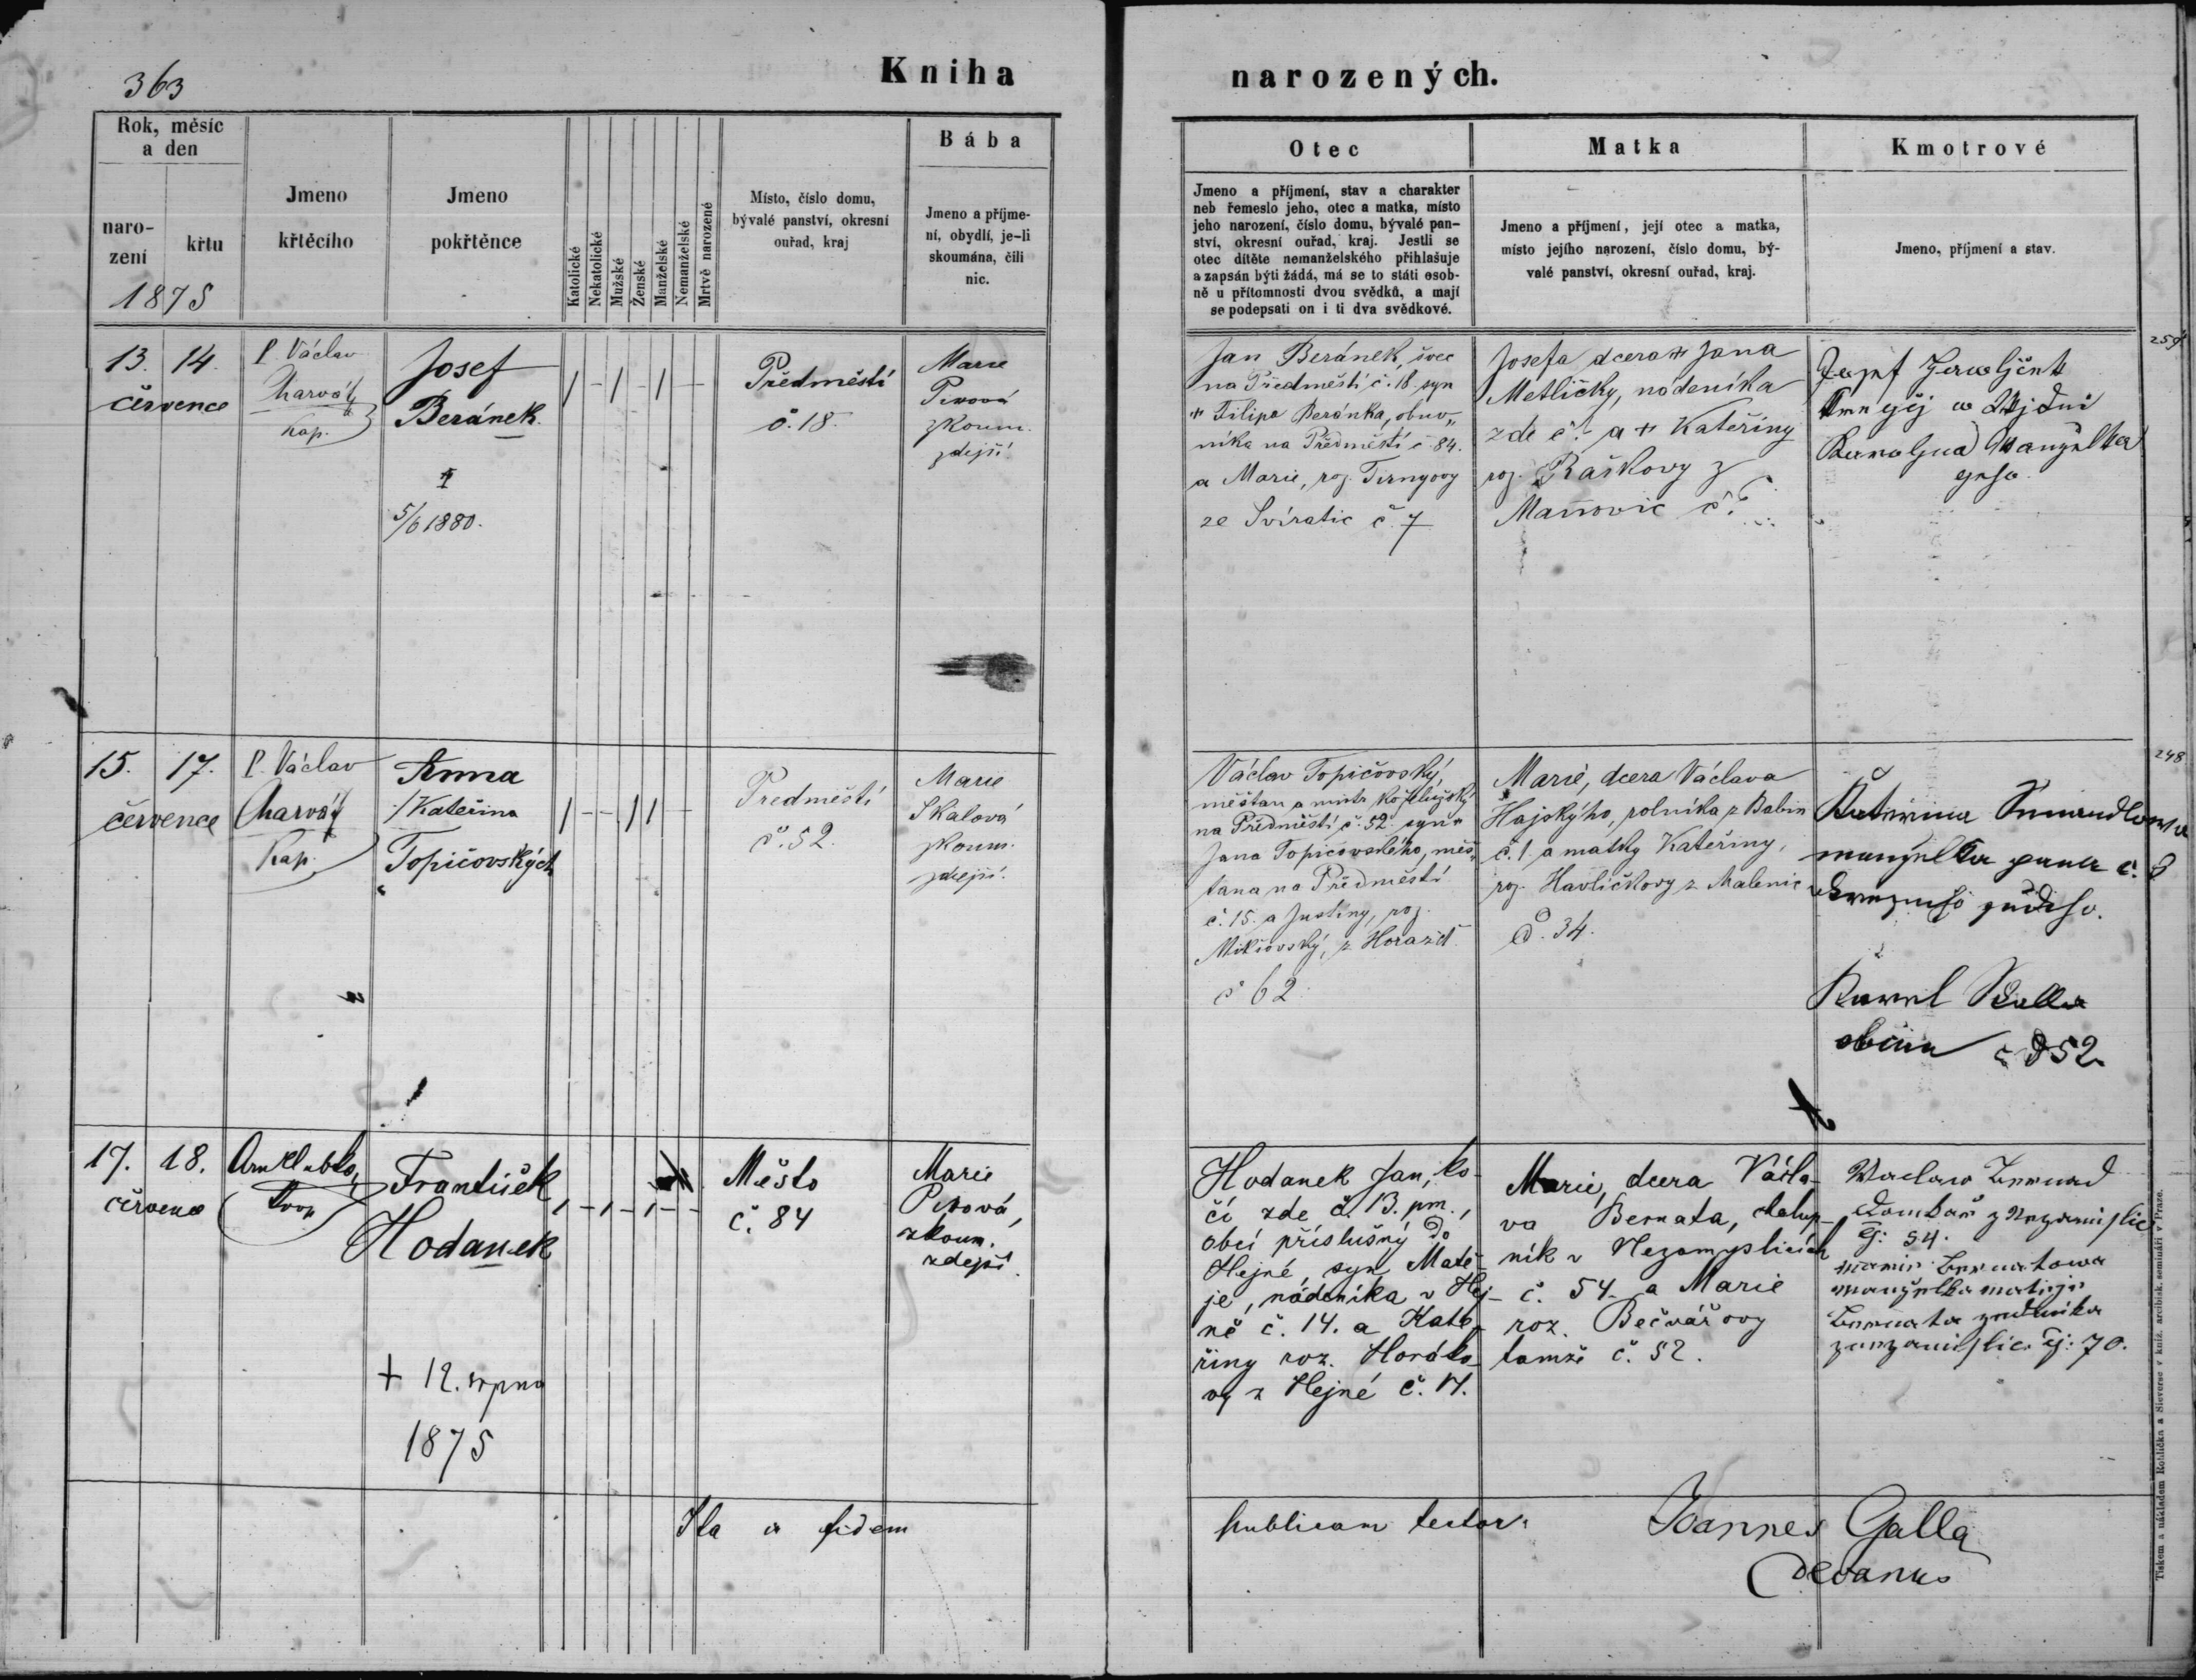 363
Kniha
narozených.
Rok, měsíc
a den
naro-
zení
křtu
1875
Jmeno
křtěcího
Jmeno
pokřtěnce
Katolické
Nekatolické
Mužské
Ženské
Manželské
Nemanželské
Mrtvě narozené
Místo, číslo domu,
bývalé panství, okresní
ouřad, kraj
Bába
Jmeno a příjme-
ní, obydlí, je-li
skoumána, čili
nic.
Otec
Jmeno a příjmení, stav a charakter
neb řemeslo jeho, otec a matka, místo
jeho narození, číslo domu, bývalé pan-
ství, okresní ouřad, kraj. Jestli se
otec dítěte nemanželského přihlašuje
a zapsán býti žádá, má se to státi osob-
ně u přítomnosti dvou svědků, a mají
se podepsati on i ti dva svědkové.
Matka
Jmeno a příjmení, její otec a matka,
místo jejího narození, číslo domu, bý-
valé panství, okresní ouřad, kraj.
Kmotrové
Jmeno, příjmení a stav.
13. 14.
července
P. Václav
Charvát
kap.
Josef
Beránek
†
5/6 1880.
1 - 1 - 1 -
Předměstí
č. 18.
Marie
zkoum.
zdejší
Jan Beránek, švec
na Předměstí č. 18. syn
† Filipa Beránka, obuv„
níka na Předměstí č 84.
a Marie, roz. Tirnyovy
ze Svíratic č. 7
Josefa dcera † Jana
Metličky, nádeníka
zde č. - a † Kateřiny
roz. Raškovy z
Maňovic č.
Josef
manželka
geho
15. 17.
července
P. Václav
Charvát
kap.
Anna
/Kateřina
Topičovských
1 - - 1 1 -
Předměstí
č. 52.
Marie
Skalová
zkoum.
zdejší.
248
Václav Topičovský,
měštan a mistr koželužský
na Předměstí č. 52. syn †
Jana Topičovského, měš„
tana na Předměstí
č. 15. a Justiny, roz.
z Horažď.
č 62
Marie, dcera Václava
Hajského, rolníka z Babin
č. 1. a matky Kateřiny,
roz. Havlíčkovy z Malenic
č. 34.
manželka pana c. k.
Karel Skalla
č 52
17. 18.
července
František
Hodanek
+ 12. srpna
1875
1 - 1 - 1 - -
Město
č. 84
Marie
zkoum.
zdejší.
Hodanek Jan, ko-
čí zde č. 13. pm.,
obcí příslušný do
Hejné, syn Matě-
je, nádeníka v Hej-
né č. 14. a Kate-
řiny roz. Horáko-
vy z Hejné č. 17.
Marie, dcera Václa-
va Bernata, chalup-
ník v Nezamyslicích
č. 54. a Marie
roz. Bečvářovy
tamže č. 52.
Waclaw Bernad
54.
manželka
70.
Ita ad fidem
publicam testor.
Joannes Galla
Decanus
Tiskem a nákladem Rohlíčka a Sieverse v kníž. arcibisk. semináři v Praze.